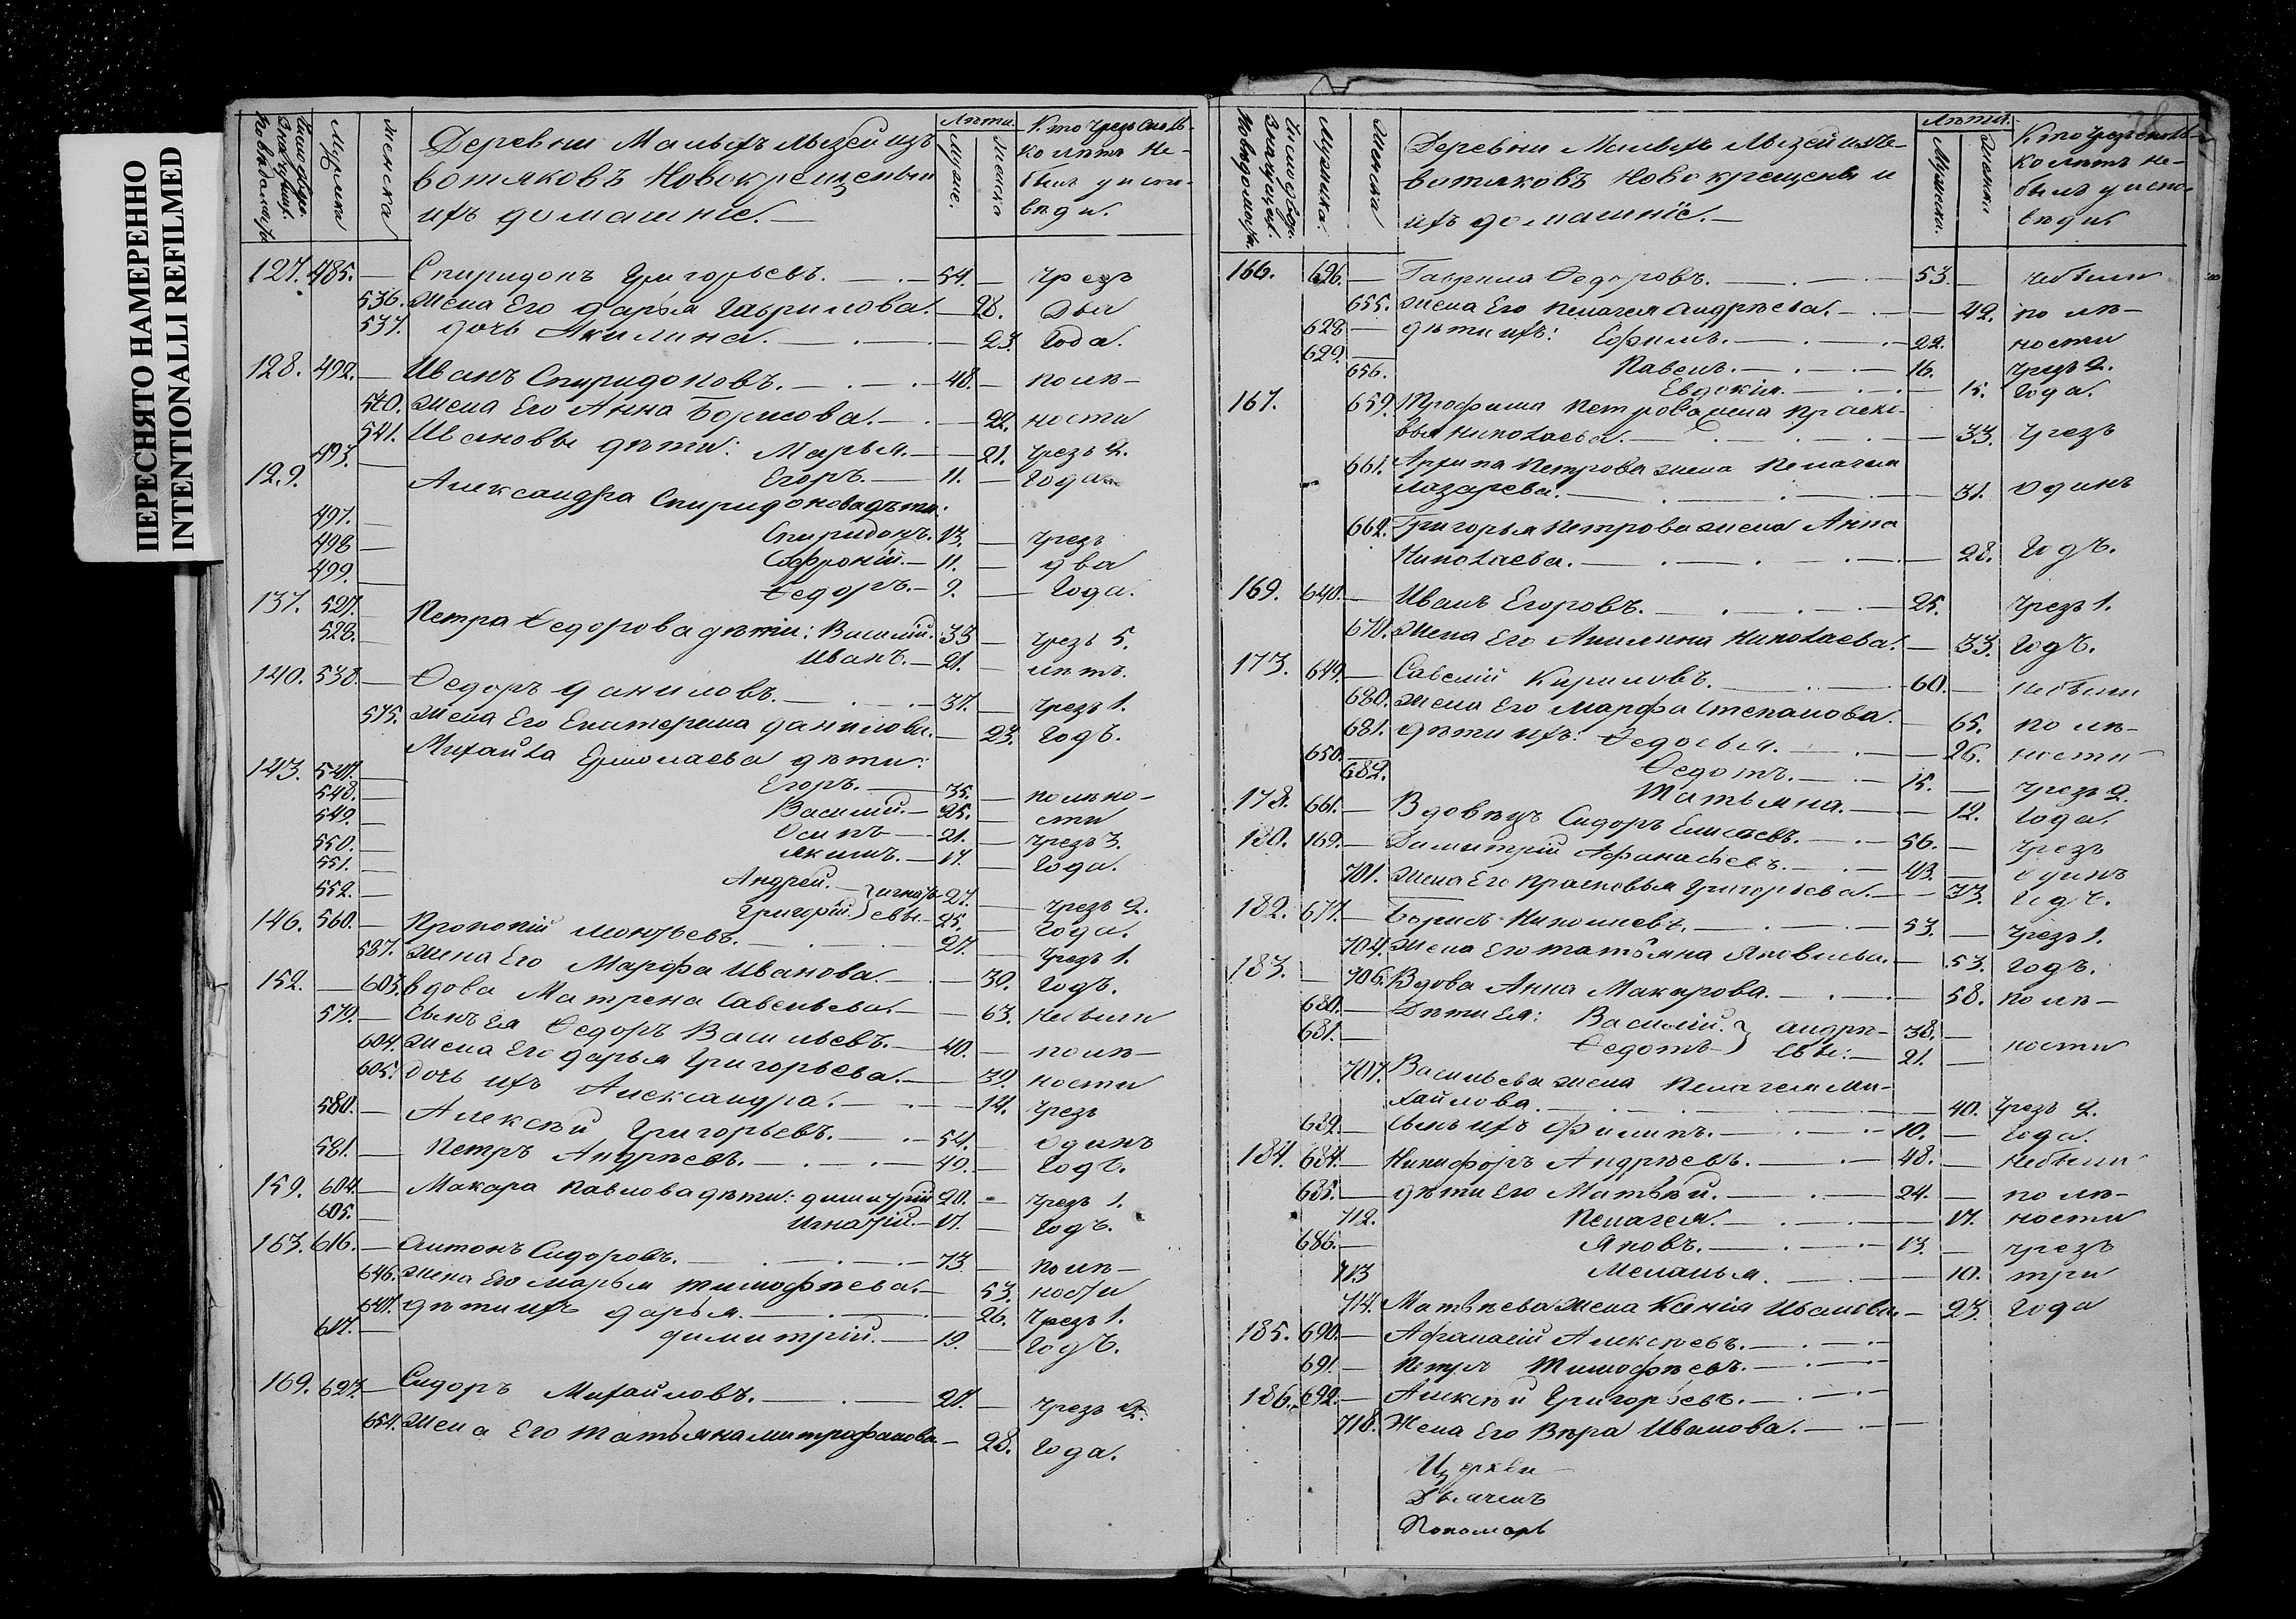 ПЕРЕСНЯТО НАМЕРЕННО
INTENTIONALLI REFILMED
Мужска
женска
Деревни Малыхъ Мызей изъ
вотяковъ Новокрещены и
ихъ домашніе.
Лѣта.
Мужс.
Женска
Кто чрезъ сколь-
ко лѣтъ не-
былъ у испо-
вѣди.
127. 485. — Спиридонъ Григорьевъ. — 54. — чрезъ
536. жена Его Дарья Гаврилова. — 28. два
537. дочь Акилина. — 23. Года.
128. 492. — Иванъ Спиридоновъ. — 48. — полѣ-
540. жена Его Анна Борисова. — 22. ности
541. Ивановы дѣти: Марья. — 21. чрезъ 2.
493. — Егоръ. — 11. — Года
129. Александра Спиридонова дѣти:
497. — Спиридонъ. 13. — чрезъ
498 — Софроній. — 11. — два
499. — Ѳедоръ. — 9. — Года.
137. 527. — Петра Ѳедорова дѣти: Василій. 33 — чрезъ 5.
528. — Иванъ. — 21. — лѣтъ.
140. 538. — Ѳедоръ Даниловъ. — 37. — чрезъ 1.
575. жена Его Екатерина Данилова. — 23. Годъ.
Михайла Ермолаева дѣти:
143. 547. — Егоръ. — 35. — полѣно-
548. — Василій. — 25. — сти
549. — Осипъ — 21. — чрезъ 3.
550. — Якимъ. — 17. — Года.
551. — Андрей. — 27. — чрезъ 2.
552. — Григорій. — 25. — Года.
146. 560. — Прокопій Леонтьевъ. — 27. — чрезъ 1.
587. жена Его Марфа Иванова. — 30. Годъ.
152. — 603. вдова Матрена Савельева. — 63. небыли
579. — сынъ Ея Ѳедоръ Васильевъ. — 40. — полѣ-
604. жена Его Дарья Григорьева. — 39. ности
605. дочь ихъ Александра. — 14. чрезъ
580. — Алексѣй Григорьевъ. — 54. — одинъ
581. — Петръ Андреевъ. — 49. — Годъ.
159. 604. — Макара Павлова дѣти: Димитрій 20. — чрезъ 1.
605. — Игнатій. — 17. — Годъ.
163. 616. — Антонъ Сидоровъ. — 73 — полѣ-
646. жена Его Марья Тимофѣева. — 53. ности
647. дѣти ихъ Дарья. — 26. чрезъ 1.
617. — Димитрій. — 19. — Годъ.
169. 627. — Сидоръ Михайловъ. — 27. — чрезъ 2.
654. жена Его Татьяна Митрофанова — 28. Года.
Мужска.
Женска
Деревни Малыхъ Мызей изъ
вотяковъ Новокрещены и
ихъ домашніе.
Лѣта.
Мужски.
Женски
Кто чрезъ сколь-
ко лѣтъ не-
былъ у испо-
вѣди
166. 626. — Гаврила Ѳедоровъ. — 53. — небыли
655. жена Его Пелагея Андрѣева. — 42. по лѣ-
628 — дѣти ихъ: Ефимъ. — 22. ности
629. — Павелъ. — 16. чрезъ 2.
656. Евдокія. — 15. Года.
167. 659. Трофима Петрова жена Праско-
вья Николаева. — 33. чрезъ
661. Архипа Петрова жена Пелагея
Лазарева. — 31. одинъ
662. Григорья Петрова жена Анна
Николаева. — 28. Годъ.
169. 640. — Иванъ Егоровъ. — 25. чрезъ 1.
670. жена Его Акилина Николаева. — 33. Годъ.
173. 649. — Савелій Кириловъ. — 60. — небыли
680. жена Его Марфа Степанова. — 65. по лѣ-
681. дѣти ихъ: Ѳедосья. — 26. ности
650. — Ѳедотъ. — 15. — чрезъ 2.
682. Татьяна. — 12. Года.
178. 661. — Вдовецъ Сидоръ Елисѣевъ. — 56. — чрезъ
180. 169. — Димитрій Афанасьевъ. — 43. — одинъ
701. жена Его Прасковья Григорьева. — 33. Годъ.
182. 677. — Борисъ Николаевъ. — 53. — чрезъ 1.
704. жена Его Татьяна Яковлева. — 53. Годъ.
183. — 706. Вдова Анна Макарова. — 58. полѣ-
680. — Дѣти Ея: Василій. } Андрѣ- 38. —
681. — Ѳедотъ } евы. — 21. — ности
707. Васильева жена Пелагея Ми-
хайлова. — 40. чрезъ 2.
682. — сынъ ихъ Филипъ. — 10. — Года.
184. 684. — Никифоръ Андрѣевъ. — 48. — небыли
685. — дѣти Его Матвѣй. — 24. — по лѣ-
712. Пелагея. — 17. ности
686. — Яковъ. — 13. — чрезъ
713 Меланья. — 10. три
714. Матвѣева жена Ксенія Иванова. — 23. Года
185. 690. — Афанасій Алексѣевъ. —
691 — Петръ Тимофѣевъ. —
186. 692. — Алексѣй Григорьевъ. —
718. Жена Его Вѣра Иванова. —
Церкви
Дьячекъ
Пономарь